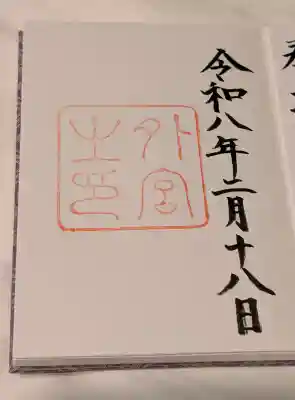 令和八年二月十八日
外宮
之印